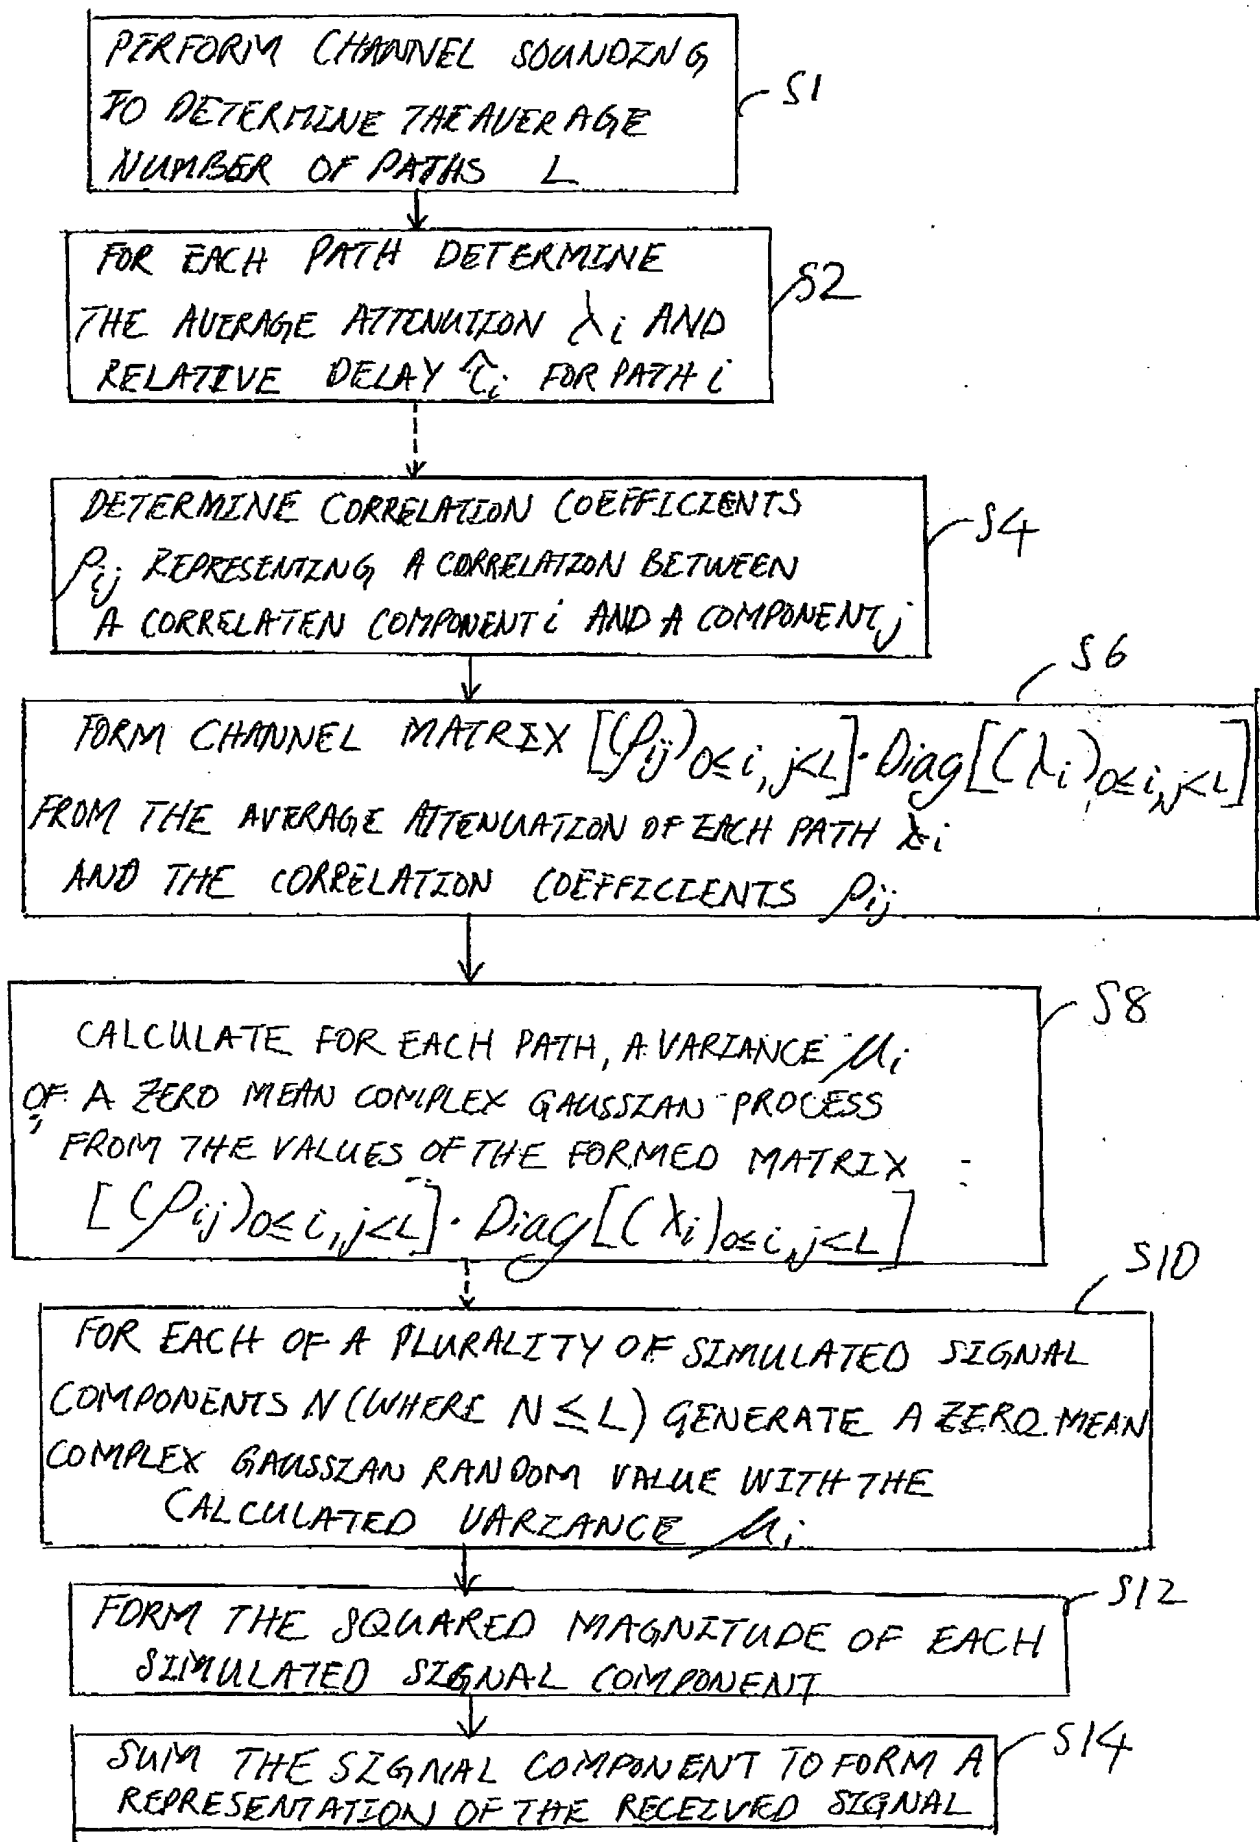 PERFORM CHANNEL SOUNDING
TO DETERMINE THE AVERAGE
NUMBER OF PATHS L
S1
FOR EACH PATH DETERMINE
THE AVERAGE ATTENUTION λi AND
RELATIVE DELAY τ̂i FOR PATH i
S2
DETERMINE CORRELATION COEFFICIENTS
ρij REPRESENTING A CORRELATION BETWEEN
A CORRELATEN COMPONENT i AND A COMPONENT j
S4
S6
FORM CHANNEL MATRIX [(ρij)0≤i,j<L]·Diag[(λi)0≤i,j<L]
FROM THE AVERAGE ATTENUATION OF EACH PATH λi
AND THE CORRELATION COEFFICIENTS ρij
S8
CALCULATE FOR EACH PATH, A VARIANCE μi
OF A ZERO MEAN COMPLEX GAUSSIAN PROCESS
FROM THE VALUES OF THE FORMED MATRIX :
[(ρij)0≤i,j<L]·Diag[(λi)0≤i,j<L]
S10
FOR EACH OF A PLURALITY OF SIMULATED SIGNAL
COMPONENTS N (WHERE N ≤ L) GENERATE A ZERO MEAN
COMPLEX GAUSSIAN RANDOM VALUE WITH THE
CALCULATED VARIANCE μi
S12
FORM THE SQUARED MAGNITUDE OF EACH
SIMULATED SIGNAL COMPONENT
S14
SUM THE SIGNAL COMPONENT TO FORM A
REPRESENTATION OF THE RECEIVED SIGNAL